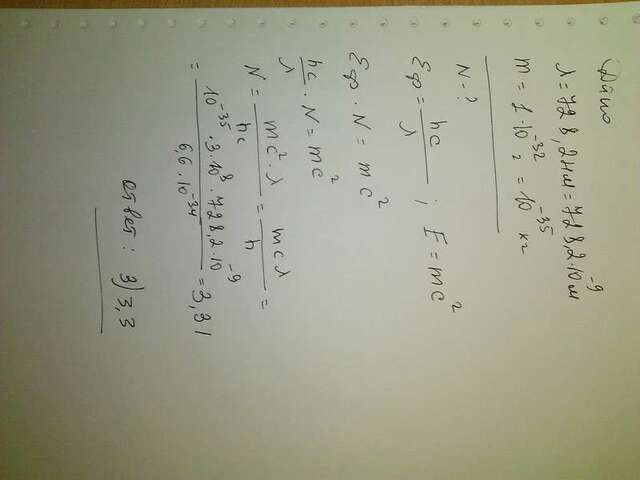 Дано
λ = 728,2 нм = 728,2·10⁻⁹ м
m = 1·10⁻³² г = 10⁻³⁵ кг
N - ?
Eф = hc/λ ; E = mc²
Eф · N = mc²
hc/λ · N = mc²
N = mc²·λ/hc = mcλ/h =
= 10⁻³⁵·3·10⁸·728,2·10⁻⁹/6,6·10⁻³⁴ = 3,31
ответ: 3) 3,3